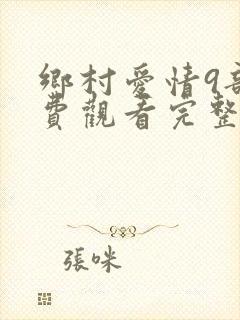 鄉村愛情9
費觀看完整
張咪